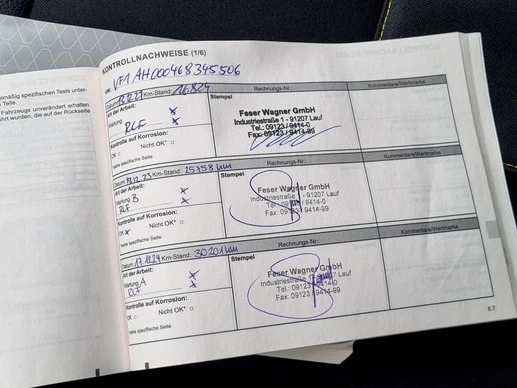 KONTROLLNACHWEISE (1/6)
VIN: VF1AH000468345506
Km-Stand:
Rechnungs-Nr.:
Kommentare/Werkmarke
Art der Arbeit:
Wartung
RLF
Kontrolle auf Korrosion:
OK □ Nicht OK* □
*siehe spezifische Seite
Stempel
Feser Wagner GmbH
Industriestraße 1 - 91207 Lauf
Tel.: 09123 / 9414-0
Fax: 09123 / 9414-99
Datum: 18.12.23 Km-Stand: 25758 km
Rechnungs-Nr.:
Kommentare/Werkmarke
Art der Arbeit:
Wartung B
RLF
Kontrolle auf Korrosion:
OK x Nicht OK* □
*siehe spezifische Seite
Stempel
Feser Wagner GmbH
Industriestraße 1 - 91207 Lauf
Tel.: 09123 / 9414-0
Fax: 09123 / 9414-99
Datum: 17.12.24 Km-Stand: 30201 km
Rechnungs-Nr.:
Kommentare/Werkmarke
Art der Arbeit:
Wartung A
RLF
Kontrolle auf Korrosion:
OK □ Nicht OK* □
*siehe spezifische Seite
Stempel
Feser Wagner GmbH
Industriestraße 1 - 91207 Lauf
Tel.: 09123 / 9414-0
Fax: 09123 / 9414-99
6.7